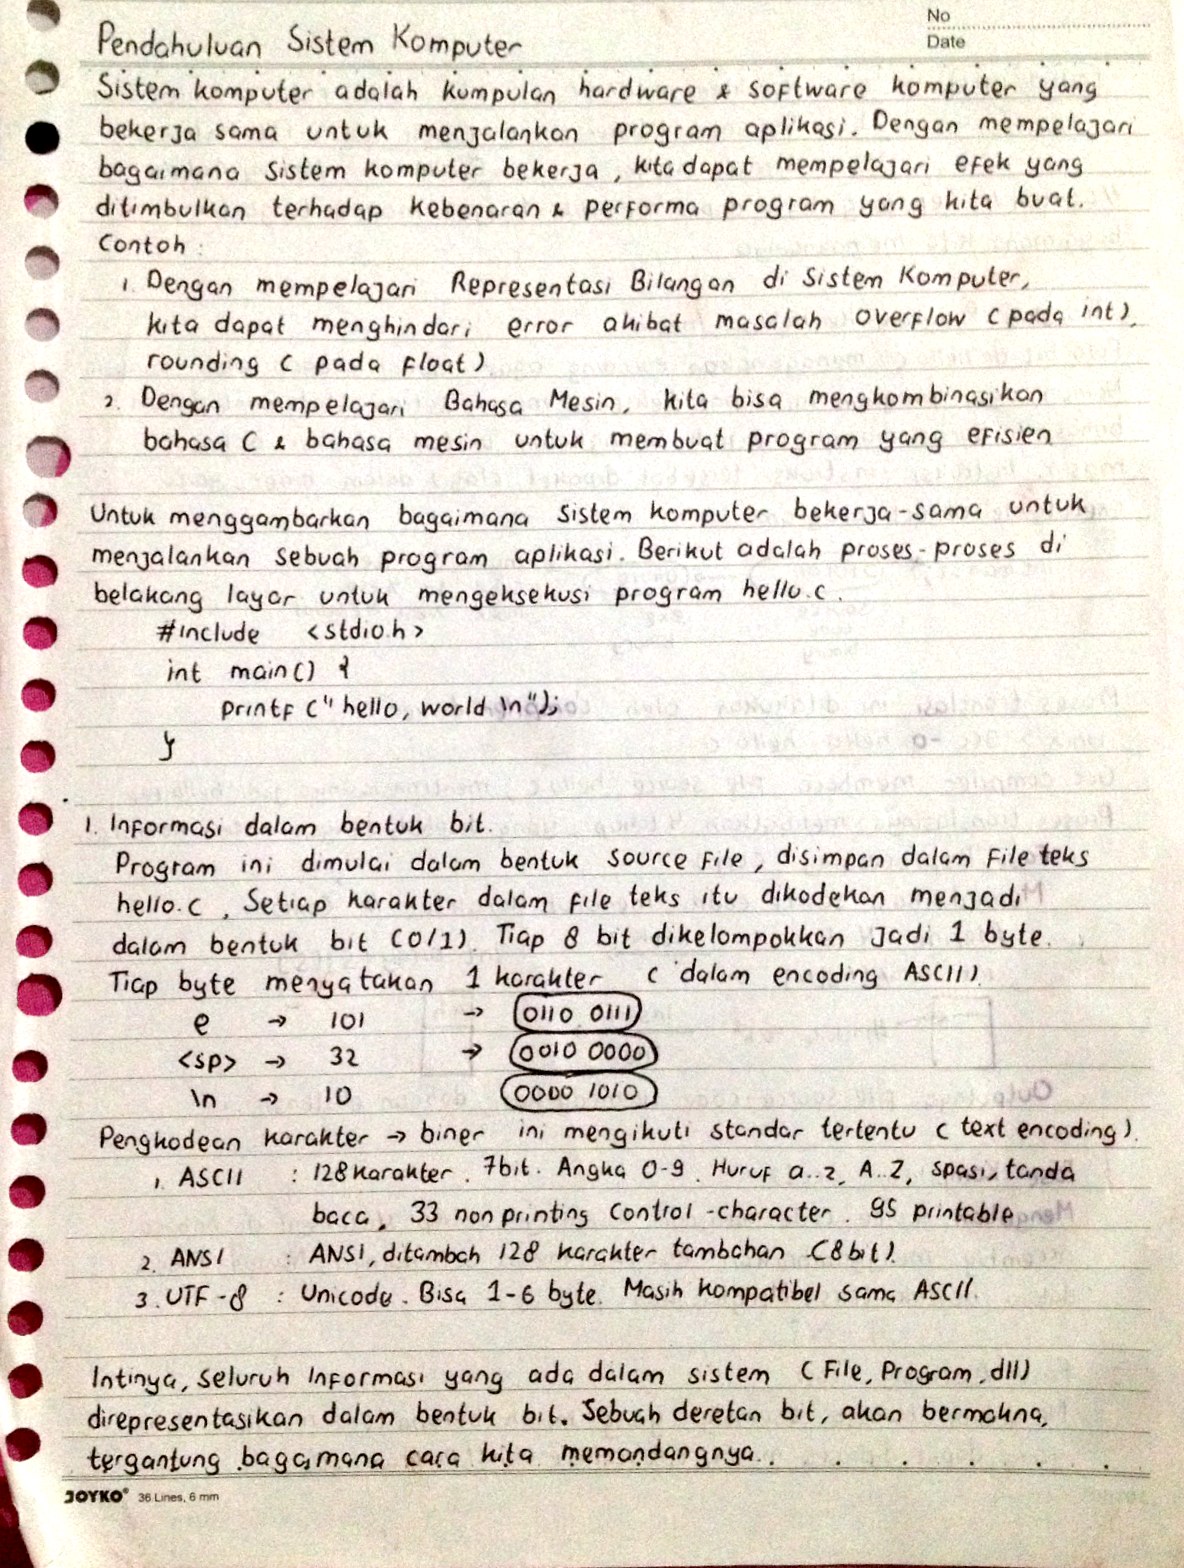 No
Date
Pendahuluan Sistem Komputer
Sistem komputer adalah kumpulan hardware & software komputer yang
bekerja sama untuk menjalankan program aplikasi. Dengan mempelajari
bagaimana sistem komputer bekerja, kita dapat mempelajari efek yang
ditimbulkan terhadap kebenaran & performa program yang kita buat.
Contoh :
1. Dengan mempelajari Representasi Bilangan di Sistem Komputer,
kita dapat menghindari error akibat masalah overflow (pada int),
rounding (pada float)
2. Dengan mempelajari Bahasa Mesin, kita bisa mengkombinasikan
bahasa C & bahasa mesin untuk membuat program yang efisien
Untuk menggambarkan bagaimana sistem komputer bekerja-sama untuk
menjalankan sebuah program aplikasi. Berikut adalah proses-proses di
belakang layar untuk mengeksekusi program hello.c.
#include <stdio.h>
int main() {
printf ("hello, world \n");
}
1. Informasi dalam bentuk bit.
Program ini dimulai dalam bentuk source file, disimpan dalam file teks
hello.c. Setiap karakter dalam file teks itu dikodekan menjadi
dalam bentuk bit (0/1). Tiap 8 bit dikelompokkan jadi 1 byte.
Tiap byte menyatakan 1 karakter (dalam encoding ASCII)
e → 101 → 0110 0111
<sp> → 32 → 0010 0000
\n → 10 0000 1010
Pengkodean karakter → biner ini mengikuti standar tertentu (text encoding).
1. ASCII : 128 karakter. 7bit. Angka 0-9. Huruf a..z, A..Z, spasi, tanda
baca, 33 nonprinting control-character. 95 printable
2. ANSI : ANSI, ditambah 128 karakter tambahan (8bit).
3. UTF-8 : Unicode. Bisa 1-6 byte. Masih kompatibel sama ASCII.
Intinya, seluruh informasi yang ada dalam sistem (File, Program, dll)
direpresentasikan dalam bentuk bit. Sebuah deretan bit, akan bermakna,
tergantung bagaimana cara kita memandangnya.
JOYKO® 36 Lines, 6 mm